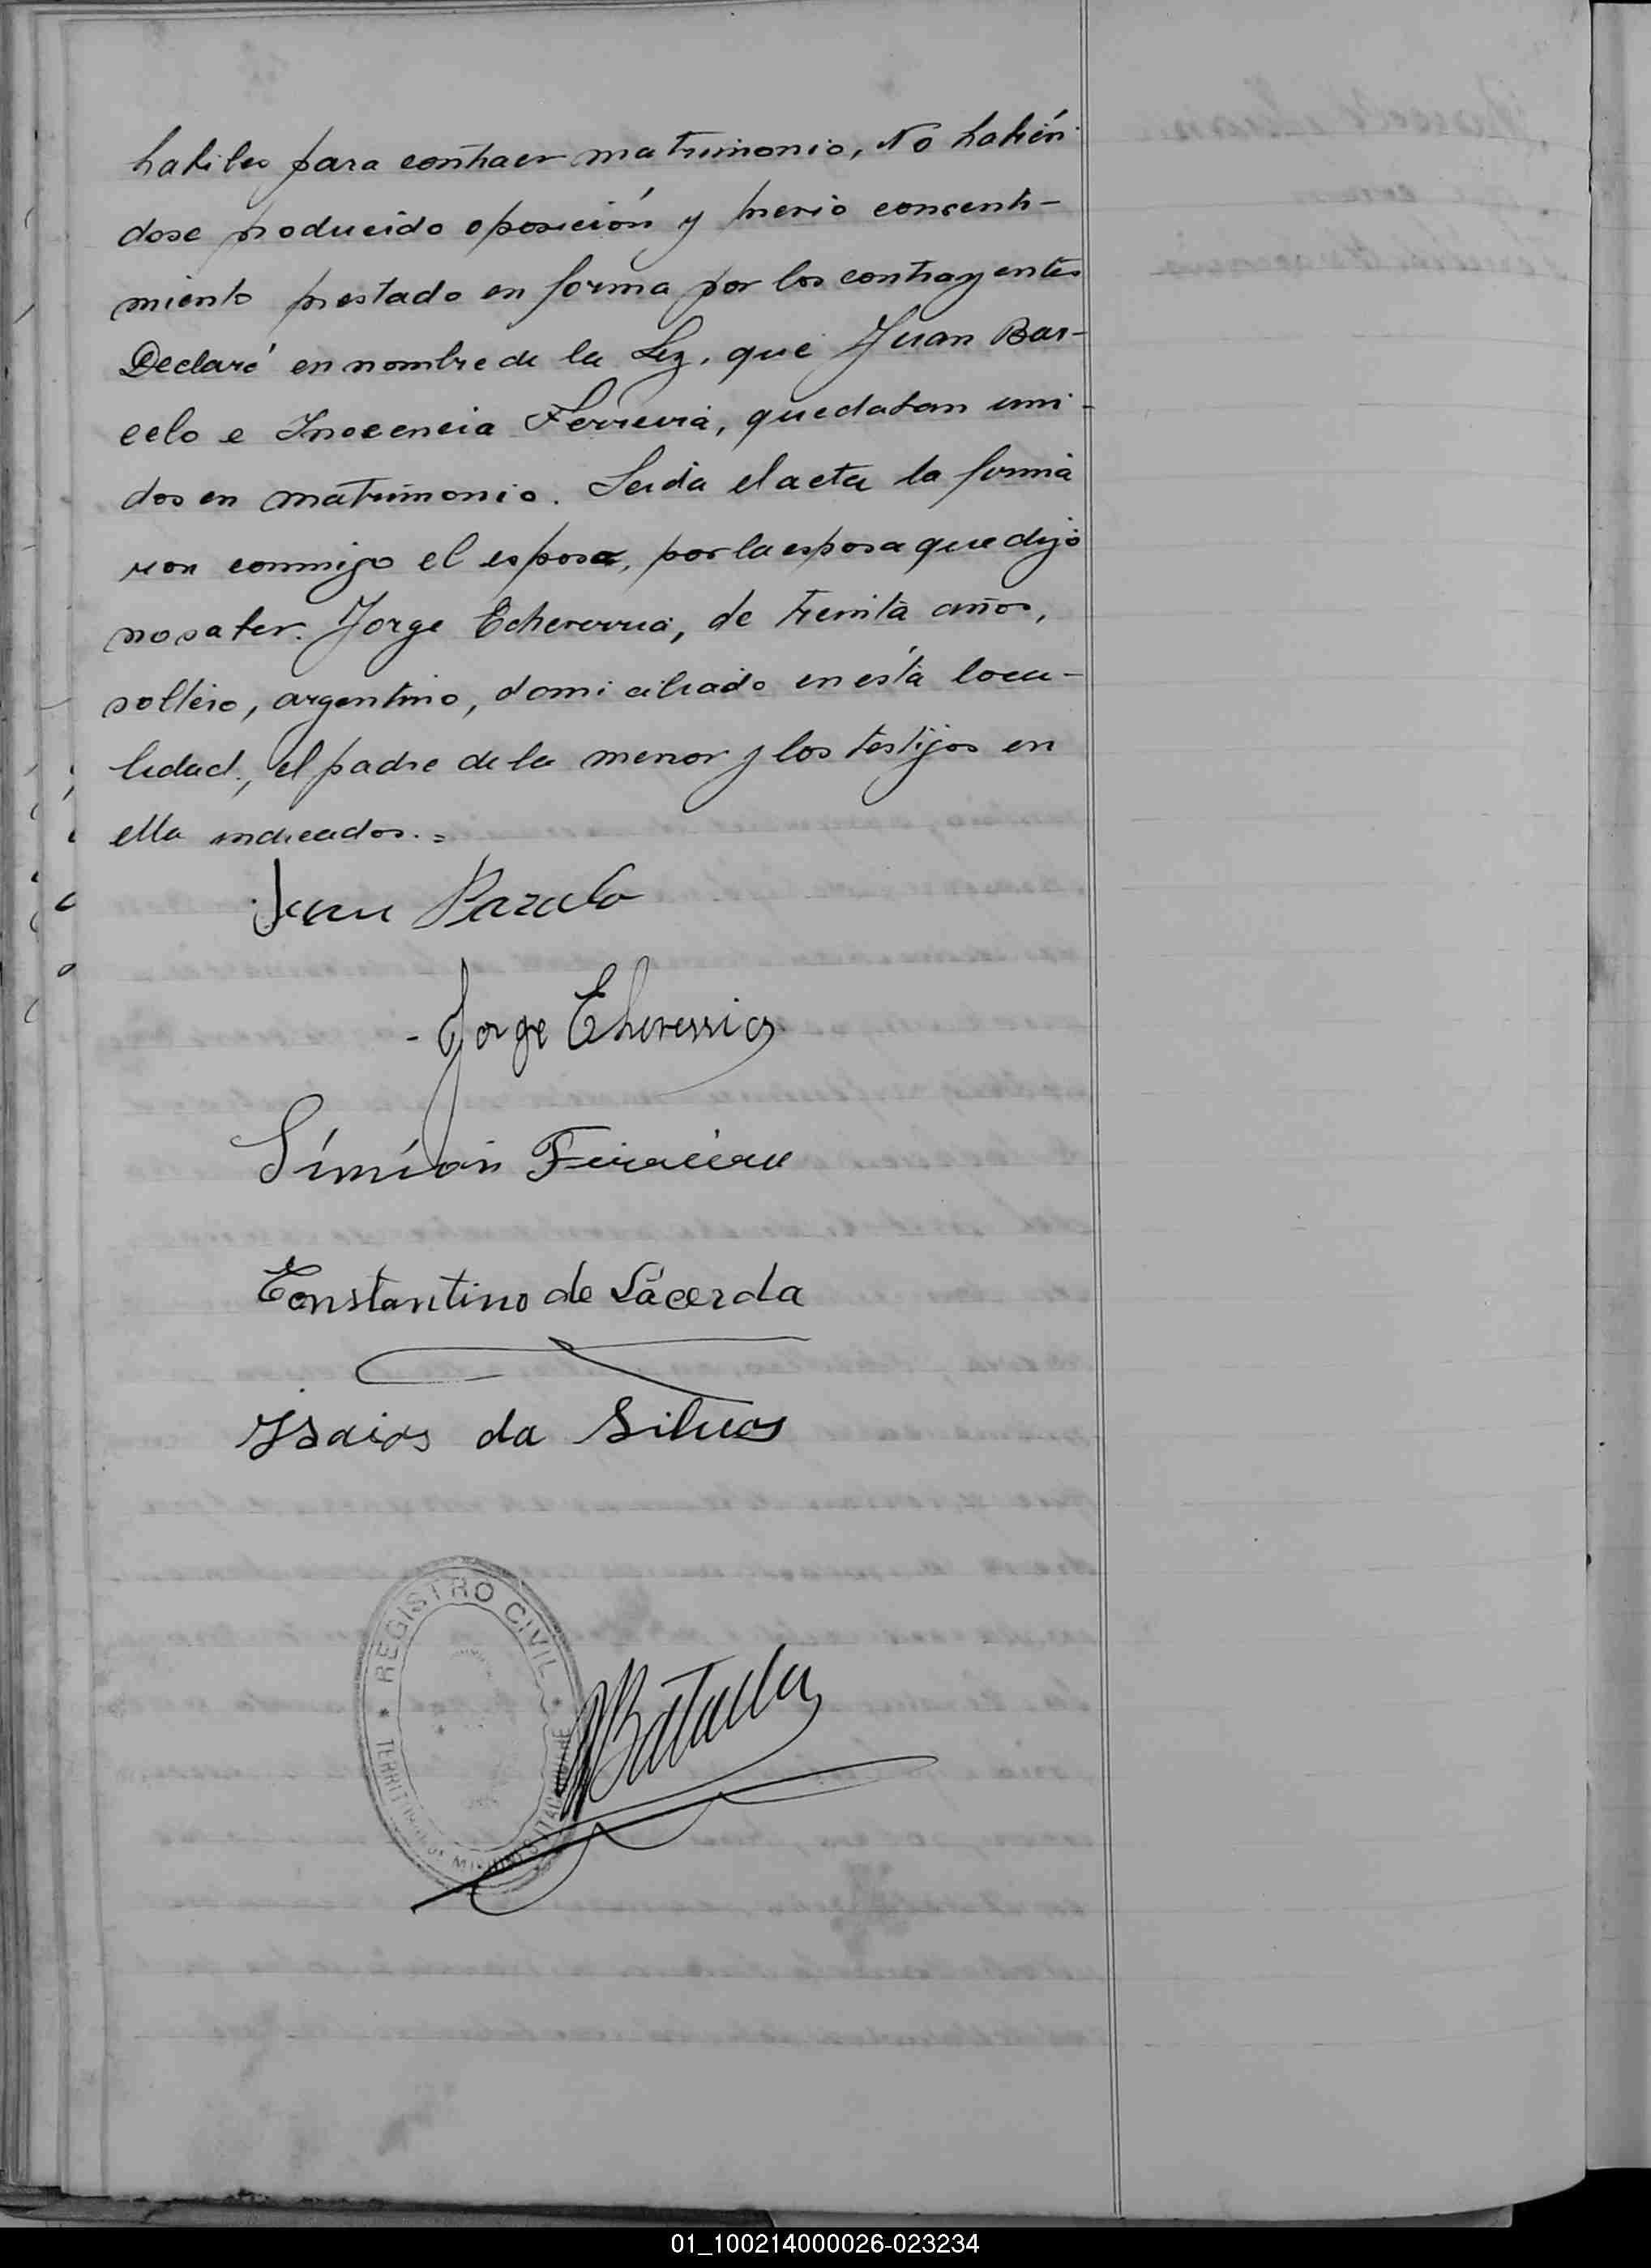 habiles para contraer matrimonio, No habién
dose producido oposición y previo consenti-
miento prestado en forma por los contrayentes
Declaré en nombre de la Ley, que Juan Bar-
celo e Inocencia Ferreira, quedaban uni-
dos en matrimonio. Leida el acta la firma
ron conmigo el esposo, por la esposa que dijo
no saber. Jorge Echeverria, de treinta años,
soltero, argentino, domiciliado en ésta loca-
lidad, el padre de la menor y los testigos en
ella indicados.=
Juan Barcelo
- Jorge Eheverria
Simión Ferreira
Constantino de Lacerda
Isaias da Silva
REGISTRO CIVIL
TERRITORIO DE MISIONES
01_100214000026-023234